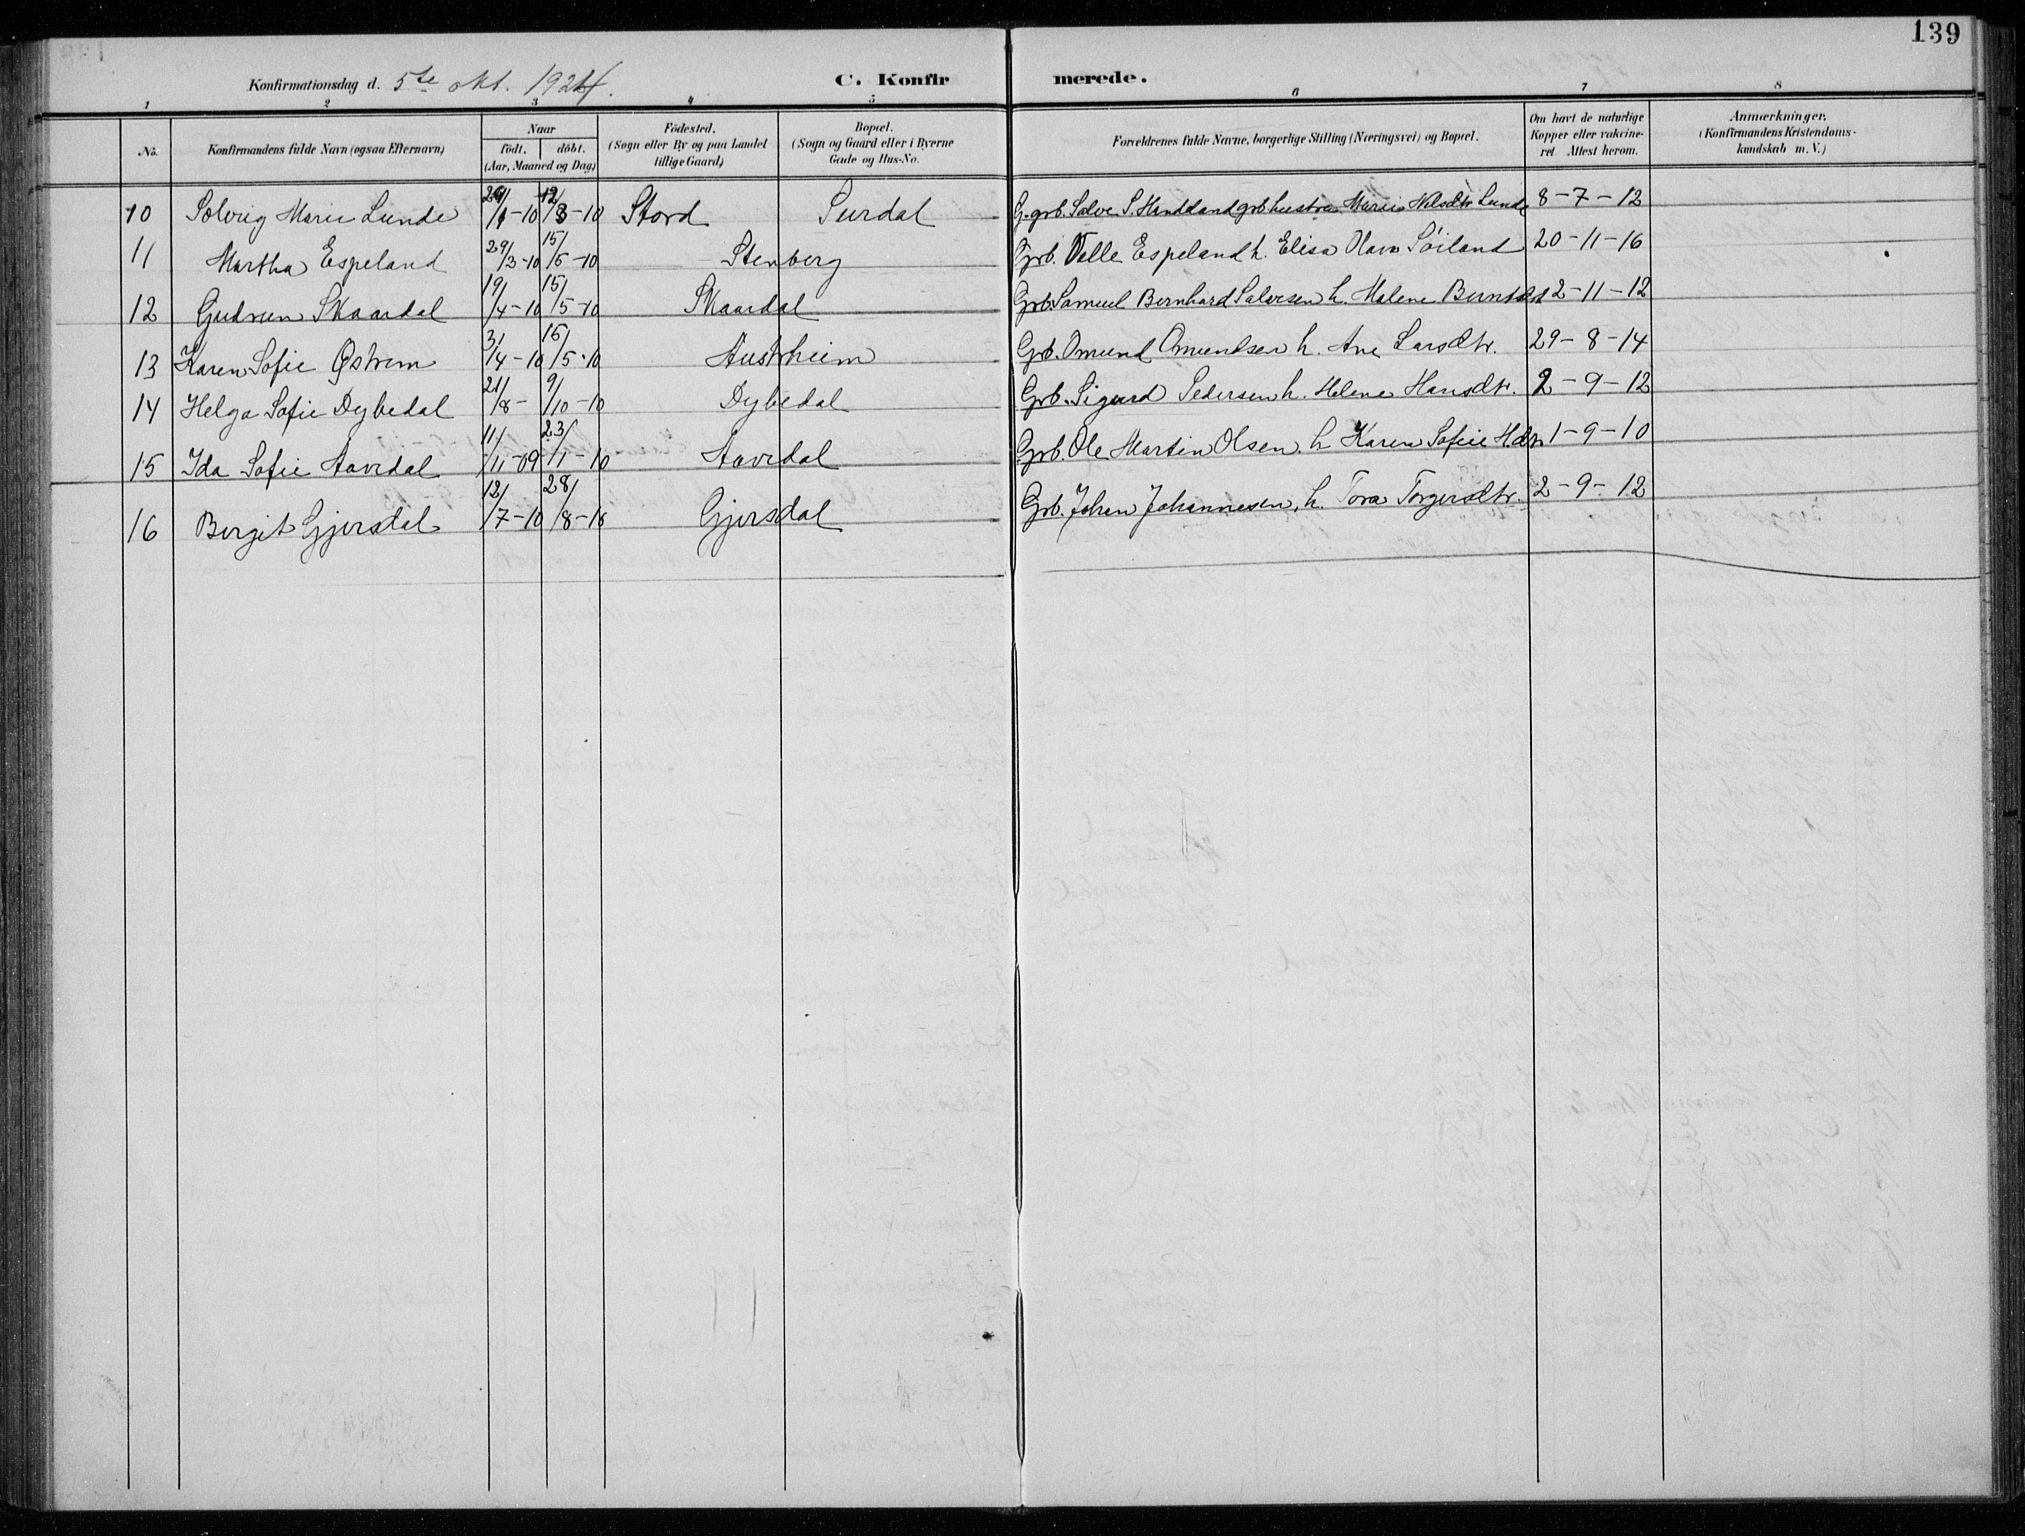 139
Konfirmationsdag d. 5te okt. 1924.
C. Konfir merede.
1 2 3 4 5 6 7 8
No. Konfirmandens fulde Navn (ogsaa Efternavn)
Naar
født. døbt.
(Aar, Maaned og Dag)
Fødested.
(Sogn eller By og paa Landet
tillige Gaard)
Bopæl.
(Sogn og Gaard eller i Byerne
Gade og Hus-No.
Forældrenes fulde Navne, borgerlige Stilling (Næringsvei) og Bopæl.
Om havt de naturlige
Kopper eller vakcine-
ret Attest herom.
Anmærkninger.
(Konfirmandens Kristendoms-
kundskab m. V.)
10 Solveig Marie Lunde /1-10 12/3-10 Stord Surdal G. grb. Salve S. Handeland grb hustru Marie Nilsdtr Lunde 8-7-12
11 Martha Espeland 29/3-10 15/5-10 Stenberg Grb. Velle Espeland h. Elisa Olava Søiland 20-11-16
12 Gudrun Skaardal 19/4-10 15/5-10 Skaardal Grb. Samuel Bernhard Salvesen h. Malene 2-11-12
13 Karen Sofie Østrem 3/4-10 15/5-10 Austrheim Grb. Omund Omundsen h. Ane Larsdtr. 29-8-14
14 Helga Sofie Dybedal 21/8- 9/10-10 Dybedal Grb. Sigurd Pedersen h. Helene Hansdtr. 2-9-12
15 Ida Sofie Aavedal 11/11-09 23/1-10 Aavedal Grb. Ole Martin Olsen, h. Karen Sofie Hdtr 1-9-10
16 Bergit Gjersdal 12/7-10 28/8-10 Gjersdal Grb. Johan Johannesen, h. Tora Torgersdtr. 2-9-12